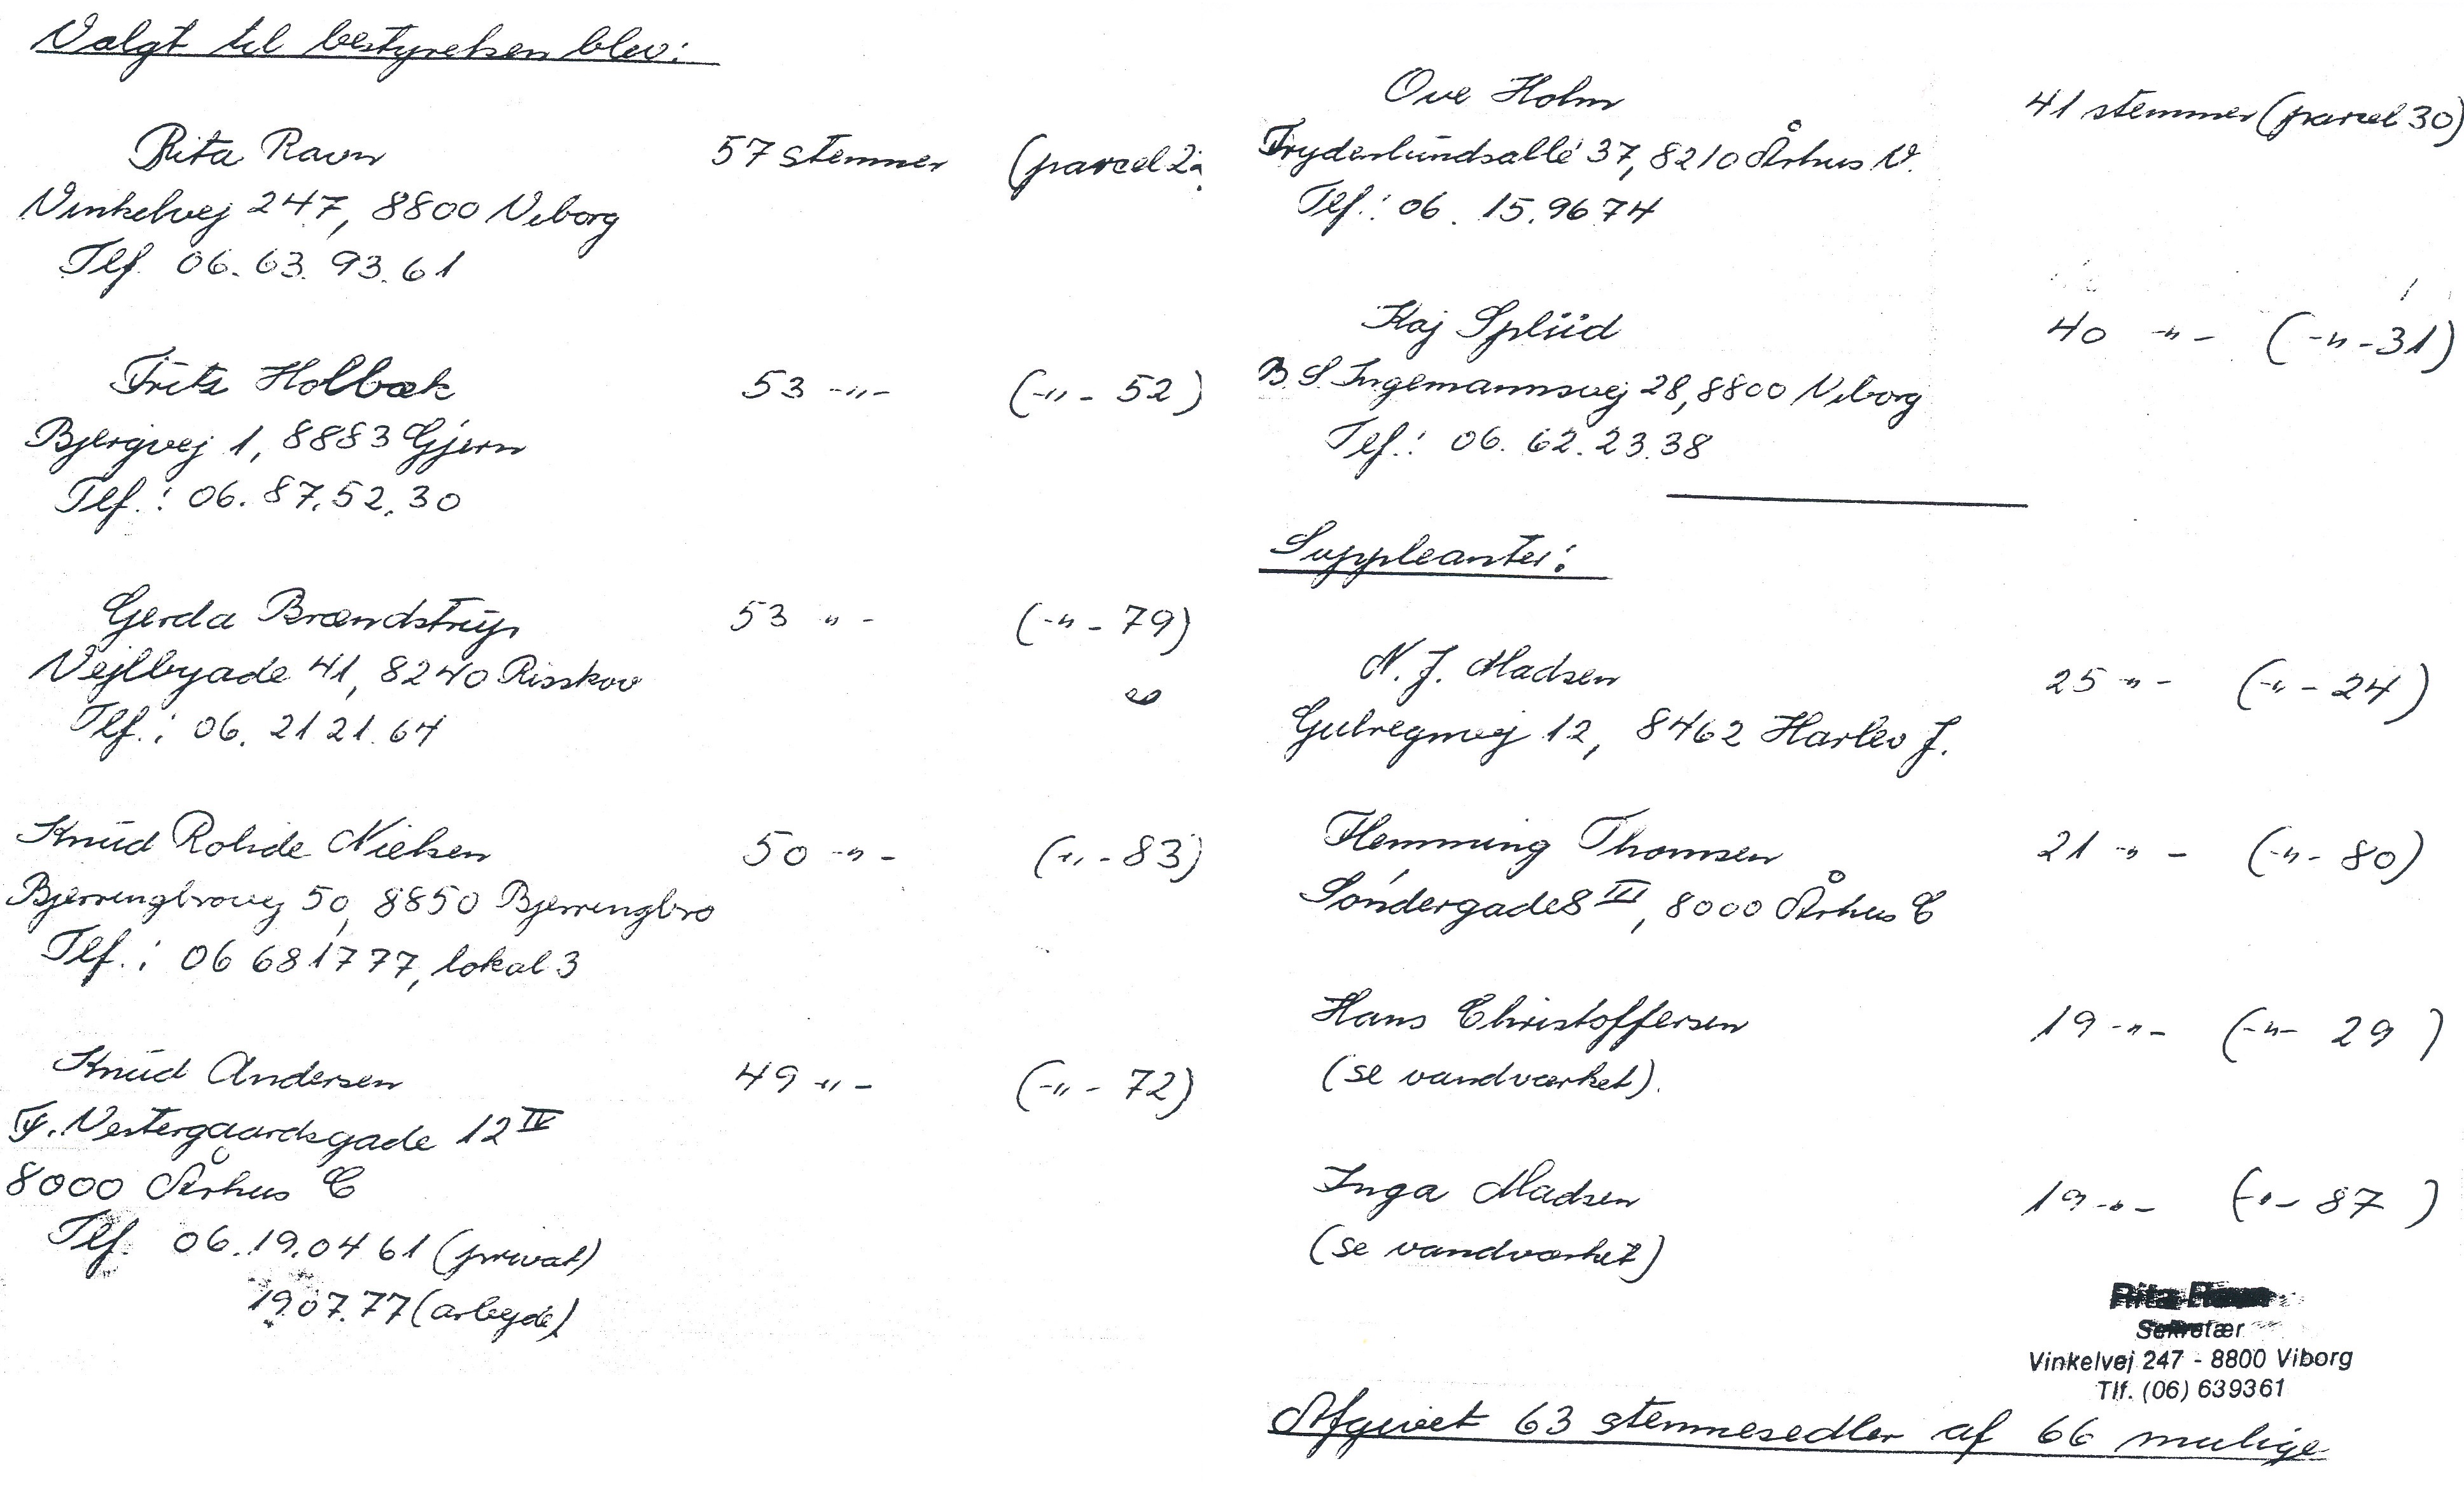 Valgt til bestyrelsen blev:
Rita Ravn 57 stemmer (parcel 2
Vinkelvej 247, 8800 Viborg
Tlf. 06.63.93.61
Frits Holbæk 53 -"- (-"- 52)
Bjergvej 1, 8883 Gjern
Tlf.: 06.87.52.30
Gerda Brændstrup 53 -"- (-"- 79)
Vejlbygade 41, 8240 Risskov
Tlf.: 06. 21 21. 64
Knud Rohde Nielsen 50 -"- (-"- 83)
Bjerringbrovej 50, 8850 Bjerringbro
Tlf.: 06 68 17 77, lokal 3
Knud Andersen 49 -"- (-"- 72)
F. Vestergaardsgade 12 IV
8000 Århus C
Tlf. 06.19.04 61 (privat)
19.07.77 (arbejde)
Ove Holm 41 stemmer (parcel 30)
37, 8210 Århus V.
Tlf.: 06. 15.96 74
Kaj Spliid 40 -"- (-"- 31)
B.S. Ingemannsvej 28, 8800 Viborg
Tlf.: 06. 62.23.38
Suppleanter:
N. J. Madsen 25 -"- (-"- 24)
12, 8462 Harlev J.
Flemming Thomsen 21 -"- (-"- 80)
Søndergade 8 III, 8000 Århus C
Hans Christoffersen 19 -"- (-"- 29)
(se vandværket).
Inga Madsen 19 -"- (-"- 87)
(se vandværket)
Rita Ravn
Sekretær
Vinkelvej 247 - 8800 Viborg
Tlf. (06) 639361
Afgivet 63 stemmesedler af 66 mulige